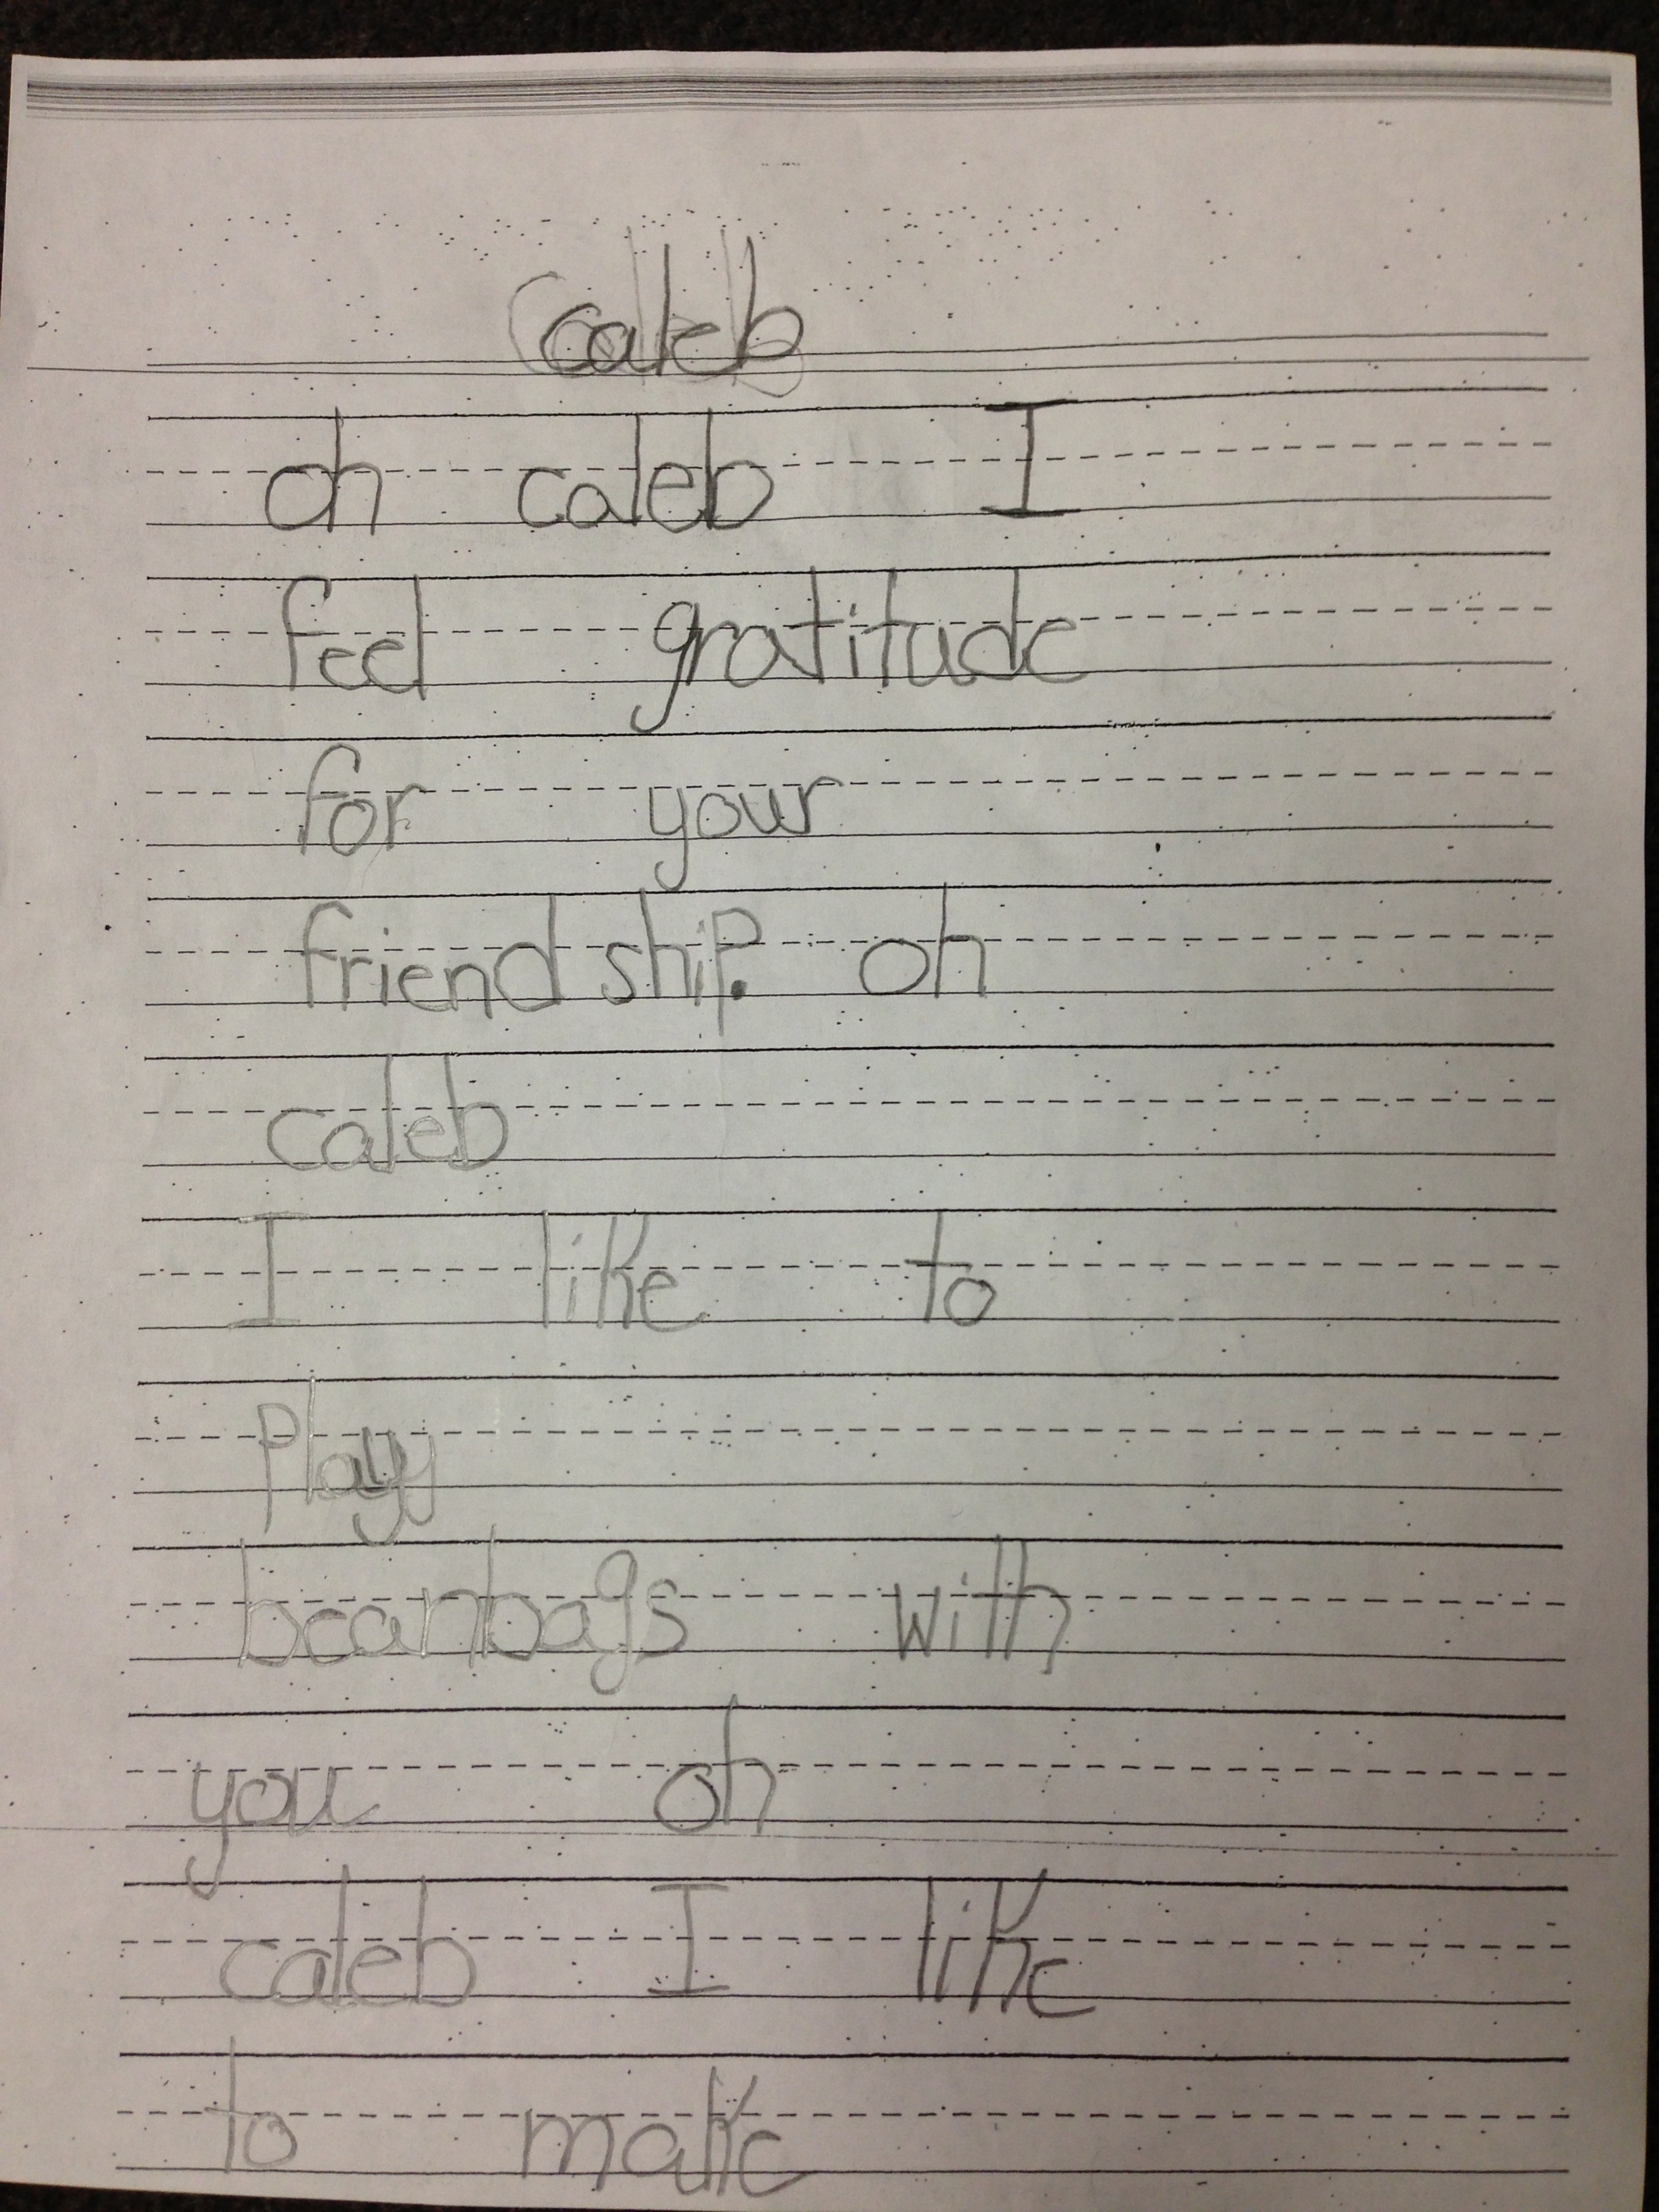 caleb
oh caleb I
feel gratitude
for your
friend ship. oh
caleb
I like to
Play
beanbags with
you oh
caleb I like
to make